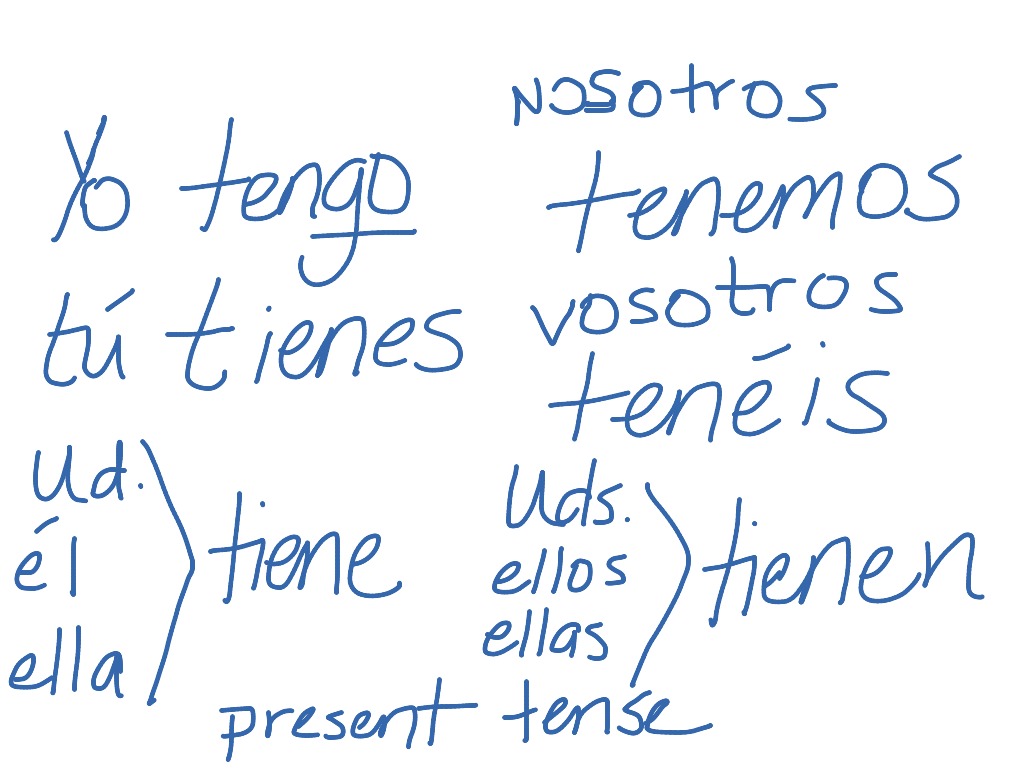 Yo tengo
tú tienes
Ud.
él
ella
tiene
nosotros
tenemos
vosotros
tenéis
Uds.
ellos
ellas
tienen
present tense